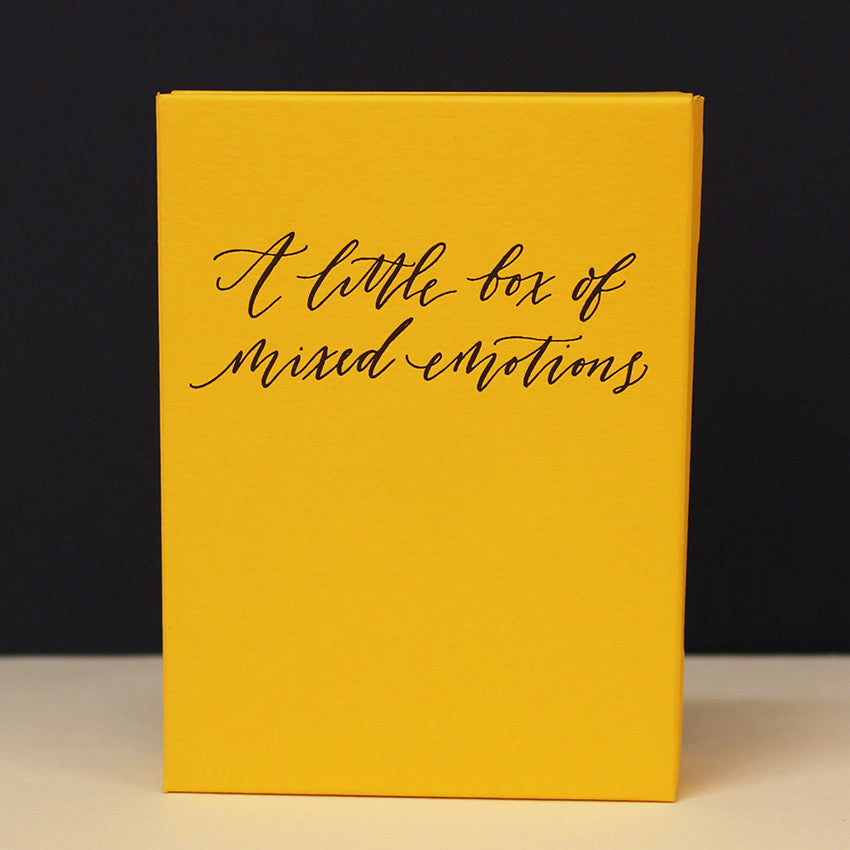 A little box of
mixed emotions